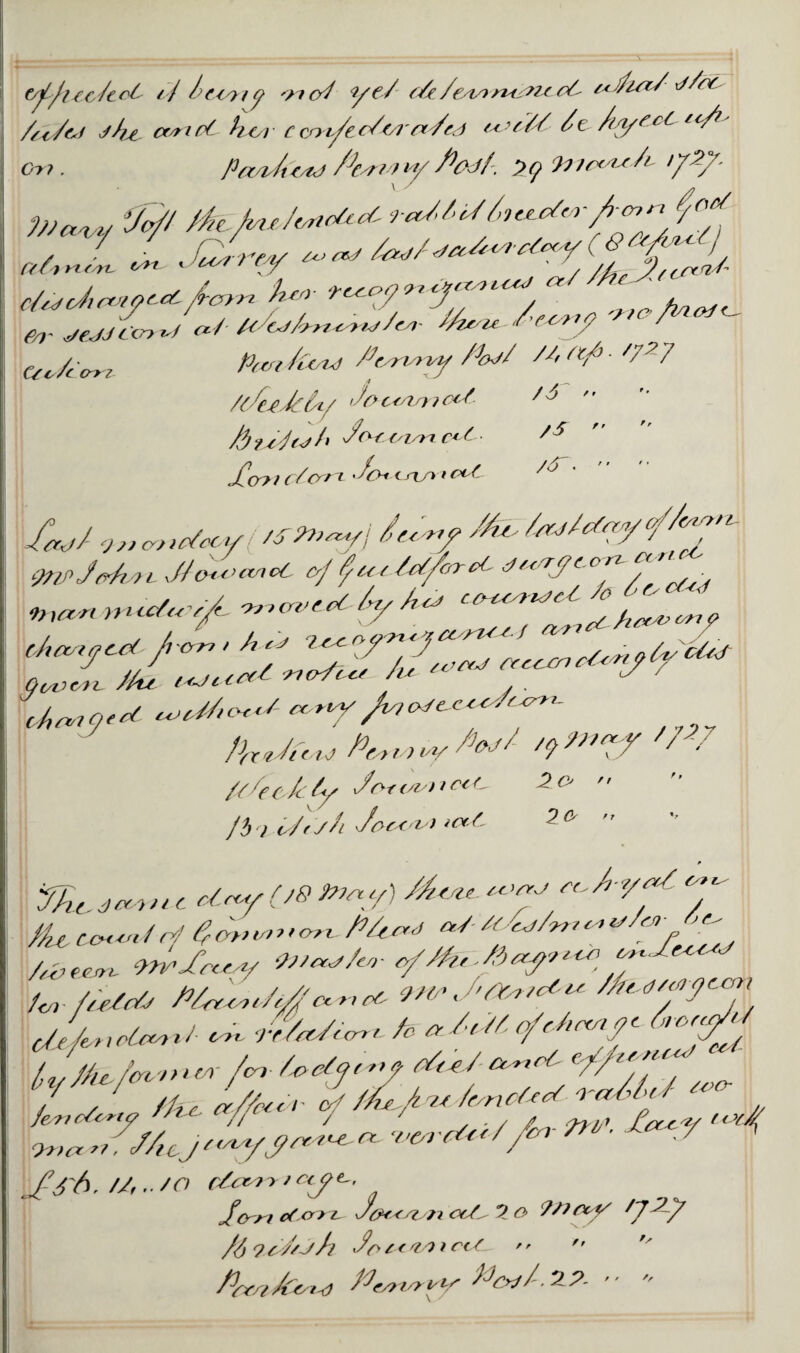 effected it being not yet determined what Sta
tutes she and her confederates will be tryed up
on. Parkers Penny Post. 29 March 1727.
Mary Toft the pretended rabbit breeder from God
almin in Surrey was last saturday (8 April)
discharged from her recognizances at the Quart
er sessions at Westminster there being no prose
cution Parkers Penny Post 12 Ap. 1727
Weekly Journal 15 " "
British Journal. 15 " "
London Journal 15. " "
Last monday (15 May) being the last day of term
Mr John Howard of Guildford surgeon and
man midwife moved by his counsel to be dis
charged from his recognizances and having
given the usual notice he was accordingly dis
charged without any prosecution
Parkers Penny Post 19 May 1727
Weekly Journal 20 " "
British Journal 20 " "
The same day (18 May) there was a tryal in
the court of Common Pleas at Westminster be
tween Mr Lacey Master of the Bagnio in Leices
ter fields Plaintiff and Mr St Andre the surgeon
defendant in relation to a bill of charge brought
by the former for lodging diet and expences at
tending the affair of the pretended rabbit wo
man. The jury gave a verdict for Mr. Lacey with
£56. 12,..10 damage.
London Journal 20 May 1727
British Journal " " "
Parkers Penny Post. 22. " "